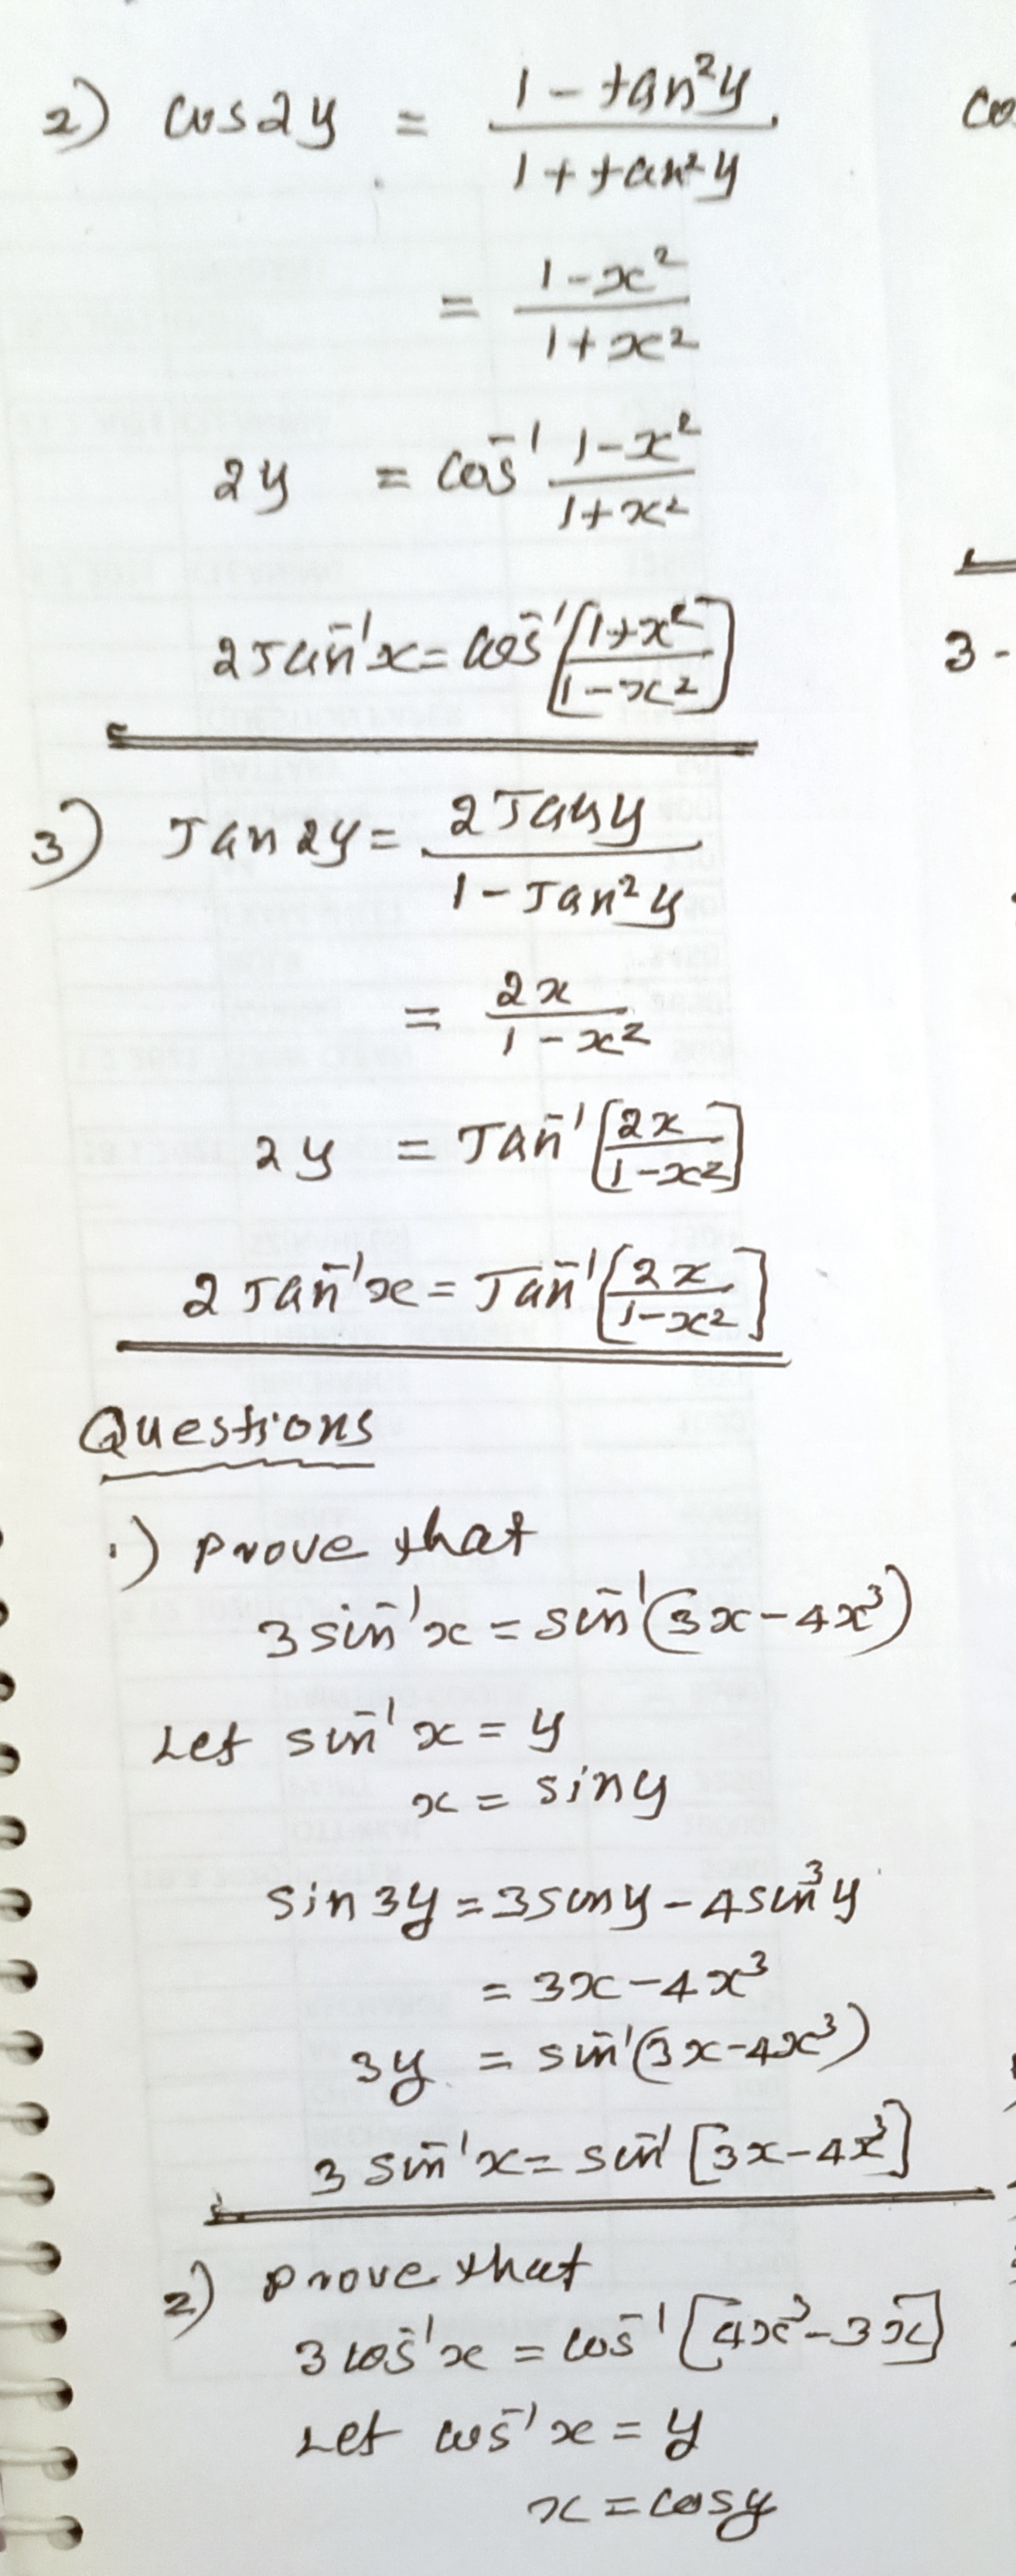 2) cos2y = (1 - tan²y)/(1 + tan²y)
= (1 - x²)/(1 + x²)
2y = cos⁻¹ (1 - x²)/(1 + x²)
2Tan⁻¹x = cos⁻¹[(1 + x²)/(1 - x²)]
3) Tan2y = 2Tany/(1 - Tan²y)
= 2x/(1 - x²)
2y = Tan⁻¹[2x/(1 - x²)]
2Tan⁻¹x = Tan⁻¹[2x/(1 - x²)]
Questions
1) Prove that
3sin⁻¹x = sin⁻¹(3x - 4x³)
Let sin⁻¹x = y
x = siny
sin3y = 3siny - 4sin³y
= 3x - 4x³
3y = sin⁻¹(3x - 4x³)
3sin⁻¹x = sin⁻¹[3x - 4x³]
2) Prove that
3cos⁻¹x = cos⁻¹[4x³ - 3x]
Let cos⁻¹x = y
x = cosy
3-